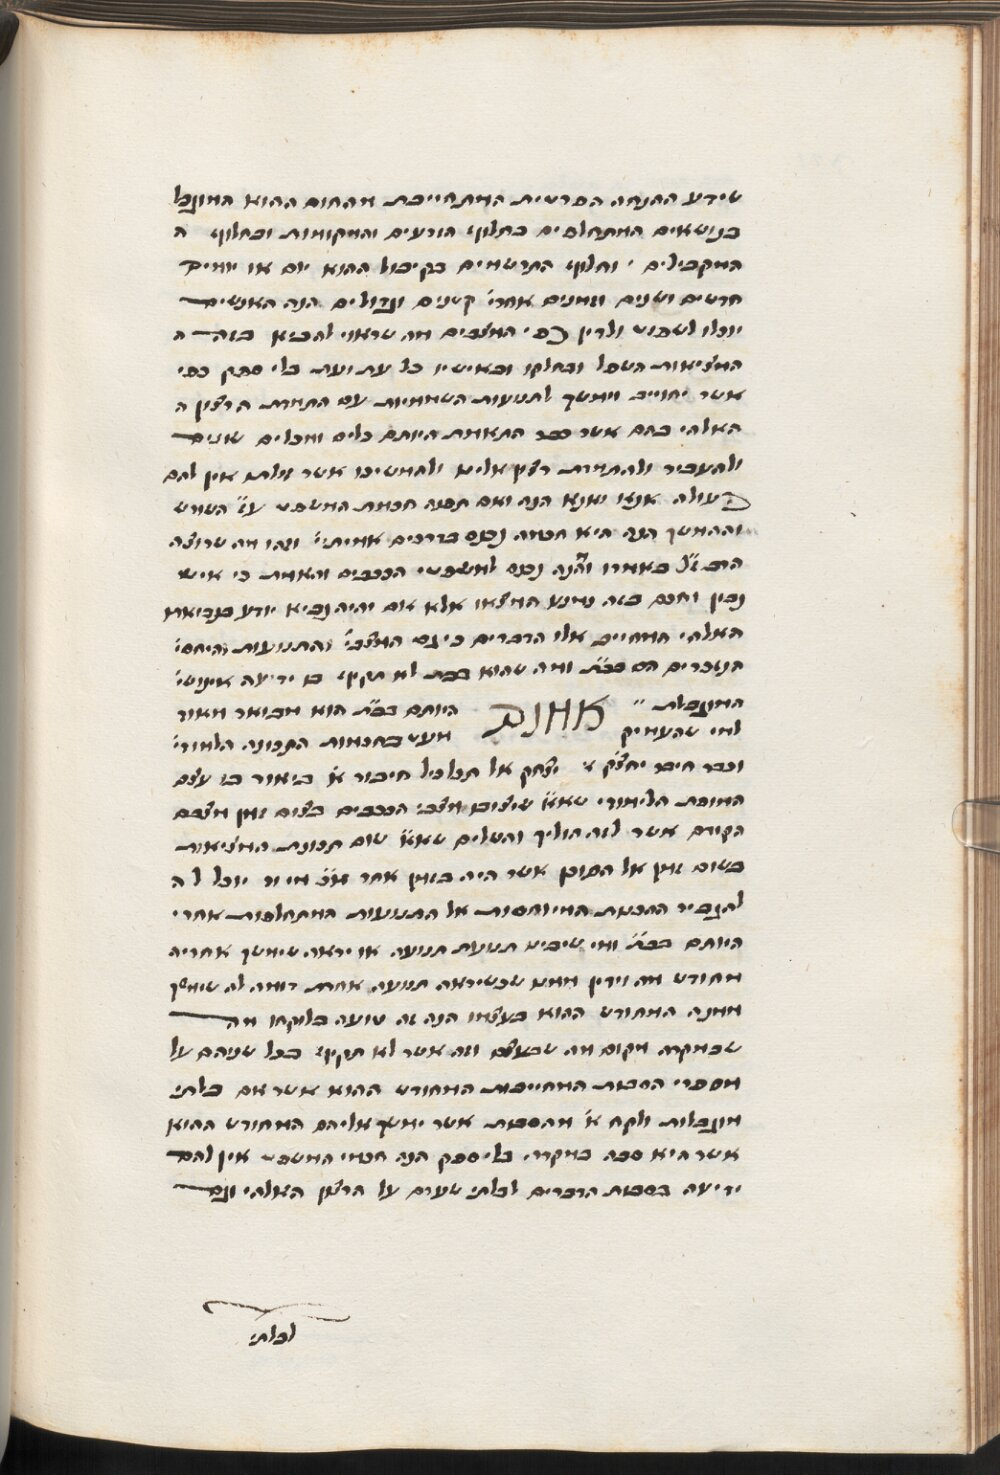 שידע ההנחה הפרטית המתחייבת מהחום ההוא המוגבל
בנושאים המתחלפים בחלוף הזרעים והמקומות ובחלוף ה
המקבילים וחלוף התרשמים בקיבול ההוא יום או יומים
חדשים ושנים וזמנים אחרי׳ קטנים וגדולים הנה האנשים
יוכלו לשפוט ולדין כפי המצבים מה שראוי להביא בזה ה
המציאות השפל ובחלקו ובאישיו כל עת ועת בלי ספק כפי
אשר יחוייב וימשך לתנועות השמימיות עם התמדת הרצון ה
האלהי בהם אשר כבר התאמת היותם כלים וסבלים שונים
ולהעביר ולהתמדת רצון אליט ולהמשיכו אשר זולתו אין להם
פעולה אנא ואנא הנה ואם תפנה חכמת המשפט ע״ז השרש
וההמשך הנה היא חכמה נכנס בדרכים אמיתי׳ וזהו מה שרוצה
הרב ז״ל באמרו והנה נכנס למשפטי הככבים והאמת כי איש
נבון וחכם בזה נמנע המצאו אלא אם יהיה נביא יודע בנבואת
האלהי המחייב אלו הדברים כי גם המצבי׳ והתנועות והיחסי׳
הנזכרים הם סבות ומה שהוא בבת לא תקיף בו ידיעה אנושי׳
המוגבלת ״ אמנם היותם בב״ת הוא מבואר מאוד
למי שהעמיק מעט בחכמות התכונה הלמודי׳
וכבר חיבר יצחק ׳ יצחק אל תבלכיל חיבור א׳ ביאור בו עצם
המופת הלימודי שא״א שיצוייר מצבי הככבים בצום זמן מצבם
הקודם אשר לזה הוליך והשלים שא״א שום תכונת המציאות
בשום זמן אל הסוכן אשר היה בזמן אחר א״כ מי זה יוכל ל ה
להגביר החכמת המיוחסות אל התנועות המתחלפות אחרי
היותם בב״ת ומי שיביט תנועת תנועה או יראה שימשך אחריה
מחודש מה וידין ממנו שכשיראה תנועה אחרת דומה לה שימשך
ממנה המחודש ההוא בעצמו הנה זה טועה בלוקחו מה
שבמקרה מקום מה שבעצם וזה אשר לא תקיף בכל שניהם על
מספרי הסבות המחייבות המחודש ההוא אשר אם בלתי
מוגבלות ולקח א׳ מהסבות אשר ימשך אליהם המחודש ההוא
אשר היא סבה במקרה בלי ספק הנה חכמי המשפט אין להם
ידיעה בסבות הדברים לבלתי שערם על הרצון האלהי וגם
לבלתי